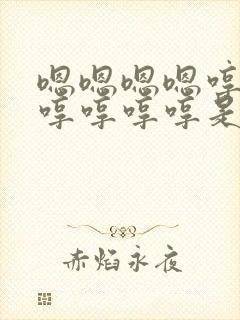 嗯嗯嗯嗯哼
哼哼哼哼是
赤焰永夜